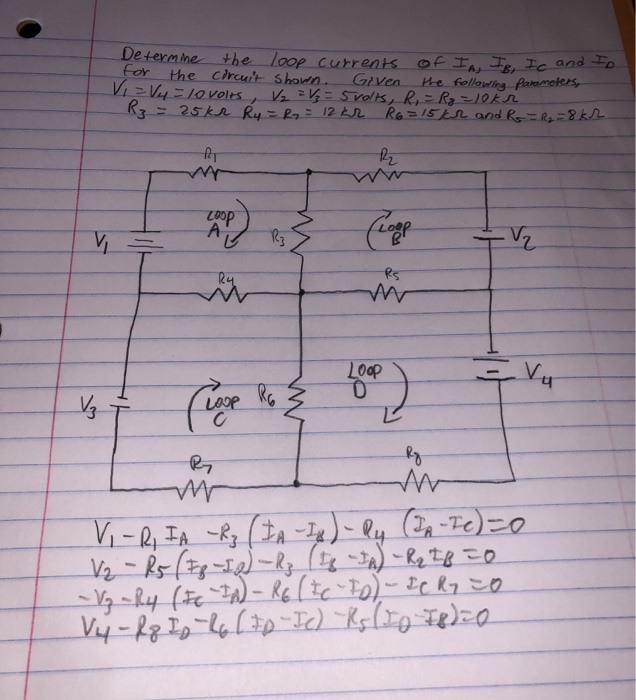 Determine the loop currents of IA, IB, IC and ID
for the circuit shown. Given the following parameters,
V1 = V4 = 10 volts, V2 = V3 = 5 volts, R1 = R8 = 10kΩ
R3 = 25kΩ R4 = R7 = 12kΩ R6 = 15kΩ and R5 = R2 = 8kΩ
R1 R2
LOOP A
R3
LOOP B
V1
V2
R4 R5
LOOP D
V4
V3
LOOP C
R6
R7 R8
V1 - R1 IA - R3 (IA - IB) - R4 (IA - IC) = 0
V2 - R5 (IB - ID) - R3 (IB - IA) - R2 IB = 0
-V3 - R4 (IC - IA) - R6 (IC - ID) - IC R7 = 0
V4 - R8 ID - R6 (ID - IC) - R5 (ID - IB) = 0